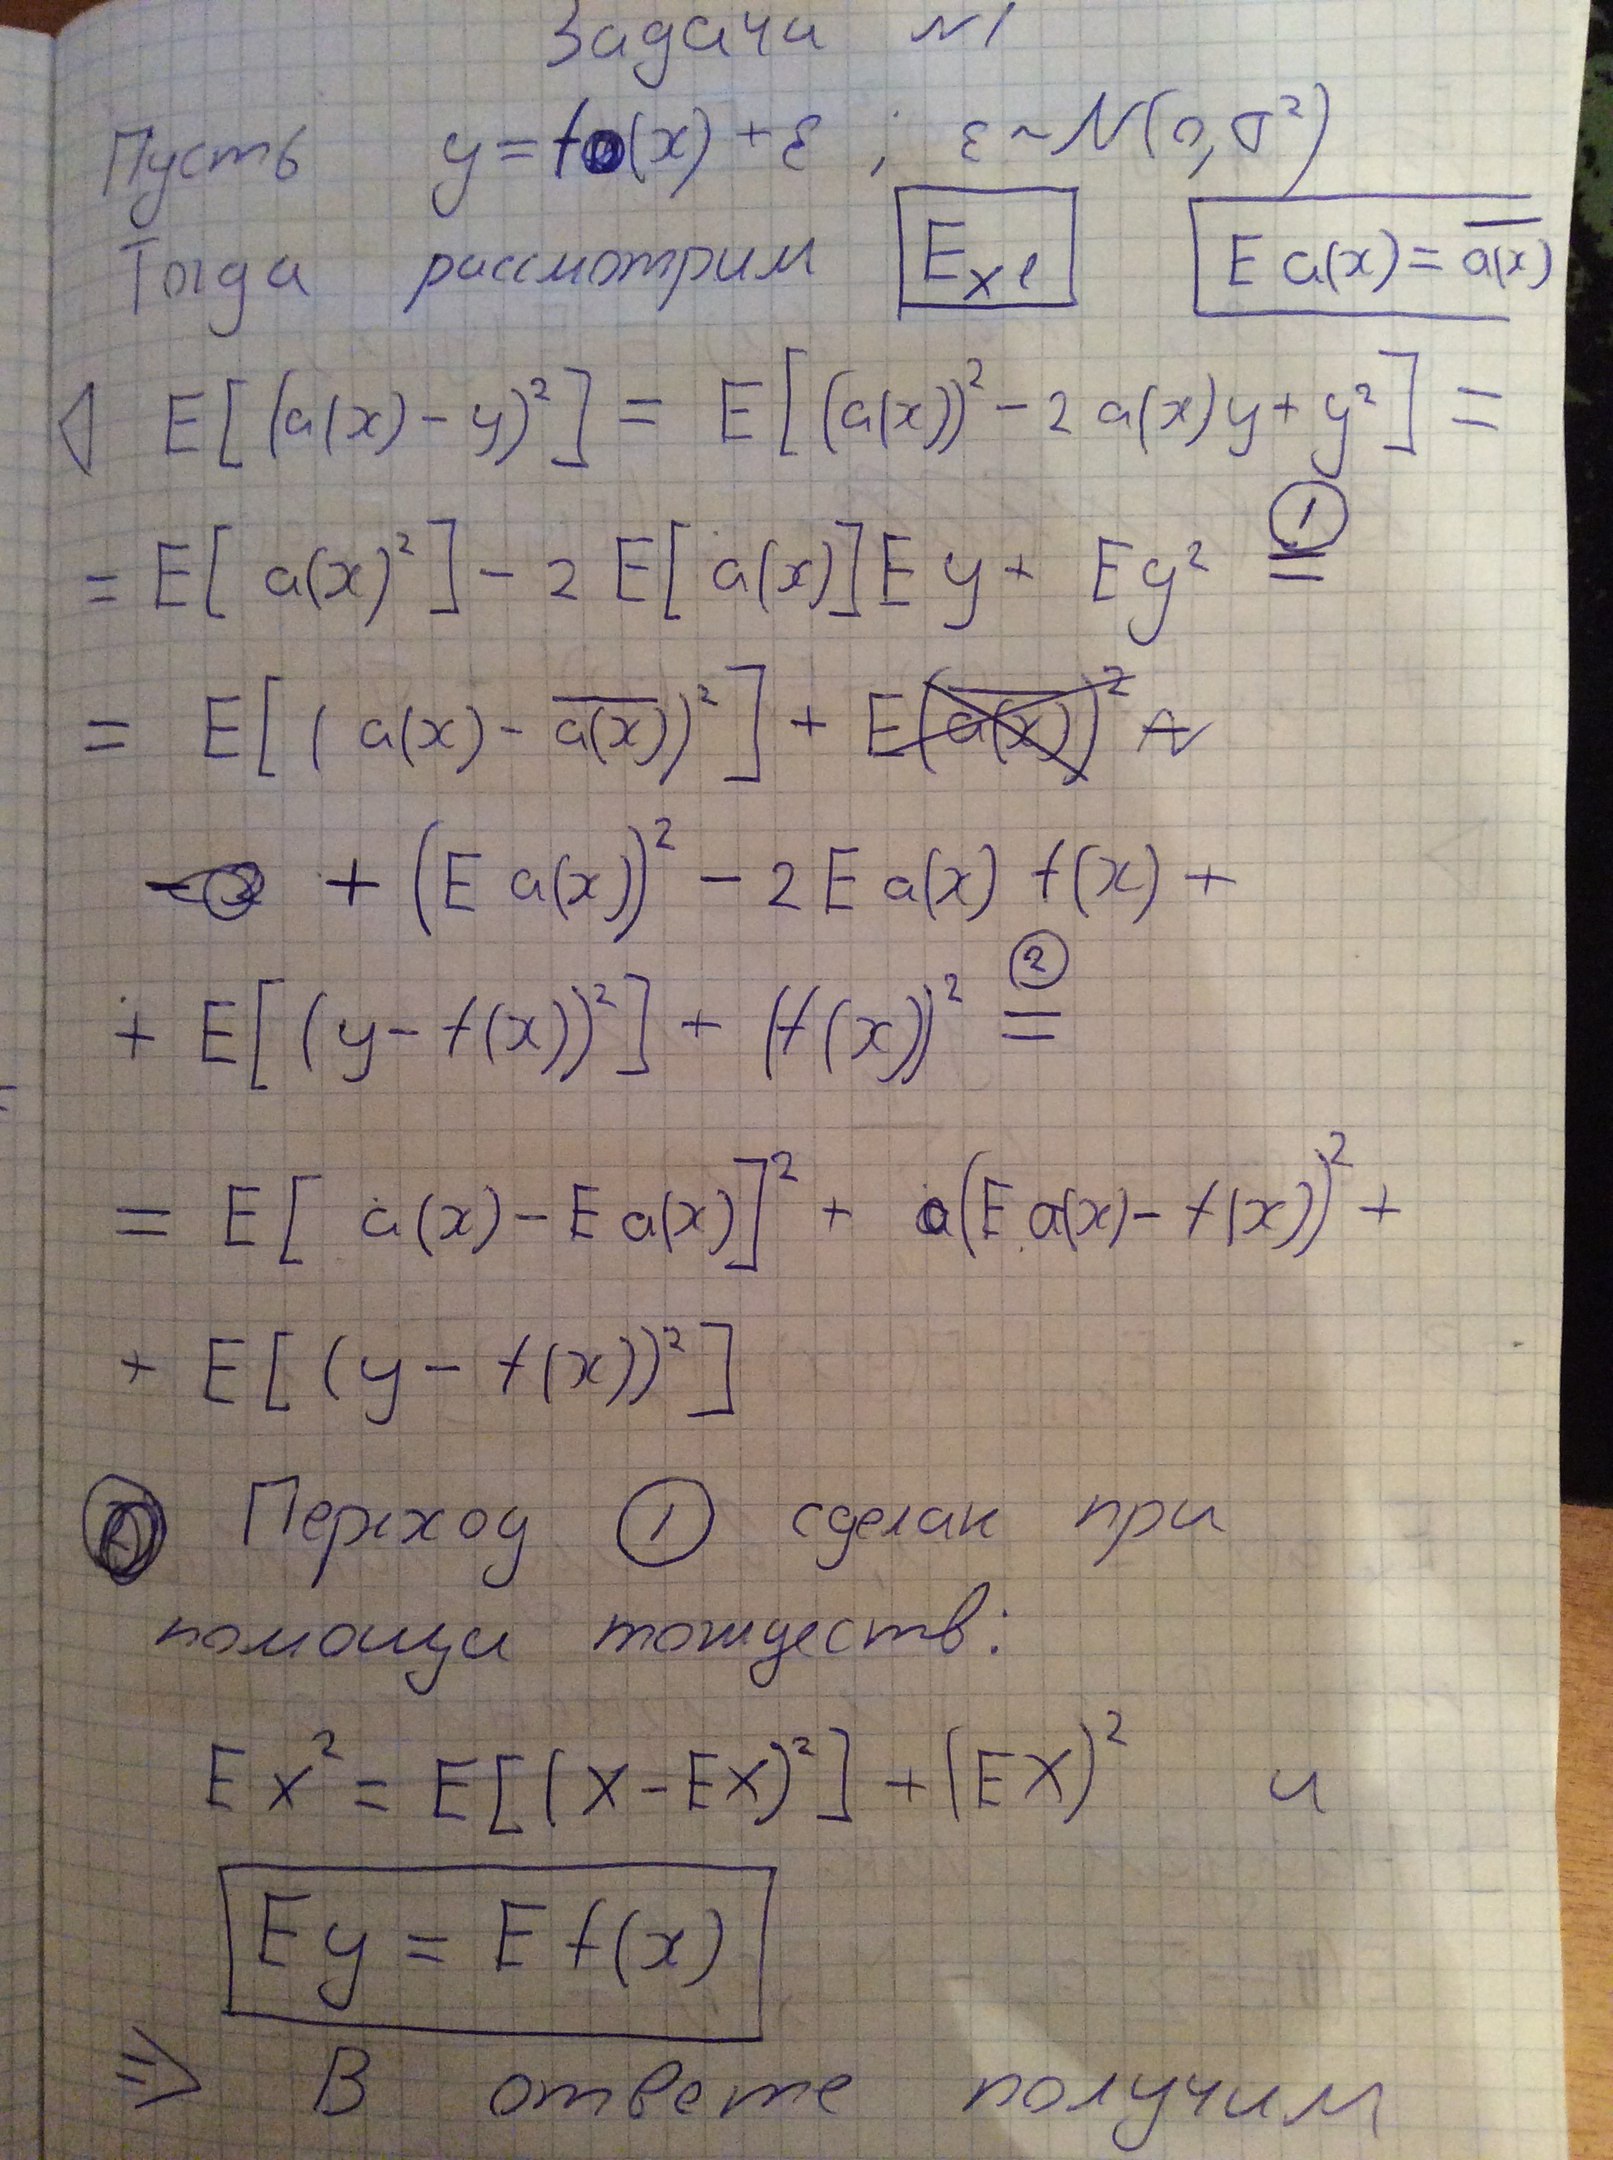 Задача №1
Пусть y = f(x) + ε ; ε ~ N(0, σ²)
Тогда рассмотрим E_{x^l} E a(x) = \overline{a(x)}
◁ E[(a(x) - y)²] = E[(a(x))² - 2 a(x) y + y²] =
= E[a(x)²] - 2 E[a(x)] E y + E y² ①=
= E[(a(x) - \overline{a(x)})²] +
+ (E a(x))² - 2 E a(x) f(x) +
+ E[(y - f(x))²] + (f(x))² ②=
= E[a(x) - E a(x)]² + (E a(x) - f(x))² +
+ E[(y - f(x))²]
Переход ① сделан при
помощи тождеств:
E X² = E[(X - EX)²] + (EX)² и
E y = E f(x)
⇒ В ответе получим